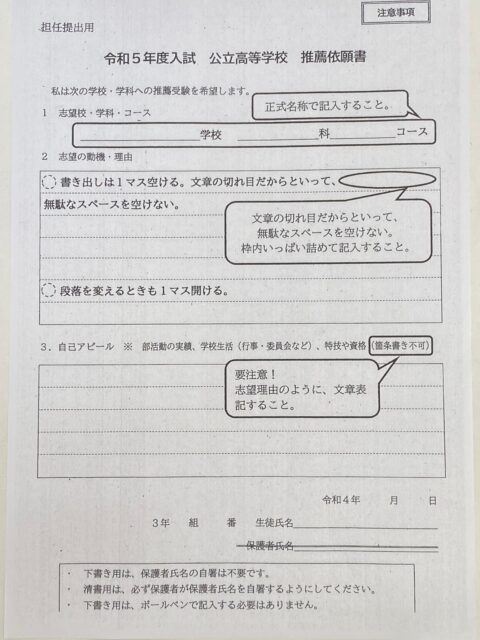 注意事項
担任提出用
令和5年度入試 公立高等学校 推薦依願書
私は次の学校・学科への推薦受験を希望します。
正式名称で記入すること。
1 志望校・学科・コース
学校 科 コース
2 志望の動機・理由
書き出しは1マス空ける。文章の切れ目だからといって、
無駄なスペースを空けない。
文章の切れ目だからといって、
無駄なスペースを空けない。
枠内いっぱい詰めて記入すること。
段落を変えるときも1マス開ける。
3.自己アピール ※ 部活動の実績、学校生活(行事・委員会など)、特技や資格(箇条書き不可)
要注意!
志望理由のように、文章表
記すること。
令和4年 月 日
3年 組 番 生徒氏名
保護者氏名
・ 下書き用は、保護者氏名の自署は不要です。
・ 清書用は、必ず保護者が保護者氏名を自署するようにしてください。
・ 下書き用は、ボールペンで記入する必要はありません。